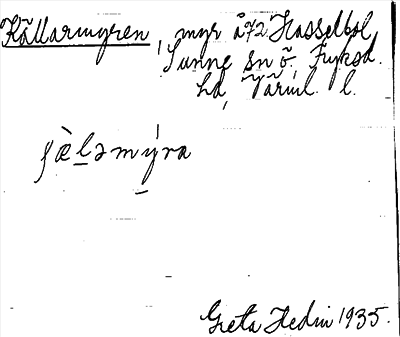 Källarmyren, myr å 72 Hasselbol,
Sunne sn ö. Fryksd.
hd, Värml. l.
ʃæ̀ləmýra
Greta Hedin 1935.